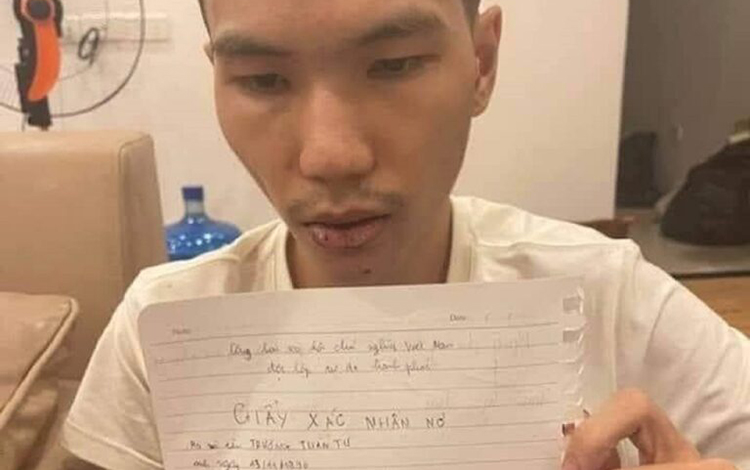 Date:
Cộng hoà xã hội chủ nghĩa Việt Nam
độc lập tự do hạnh phúc
GIẤY XÁC NHẬN NỢ
TRƯƠNG TUẤN TÚ
ngày